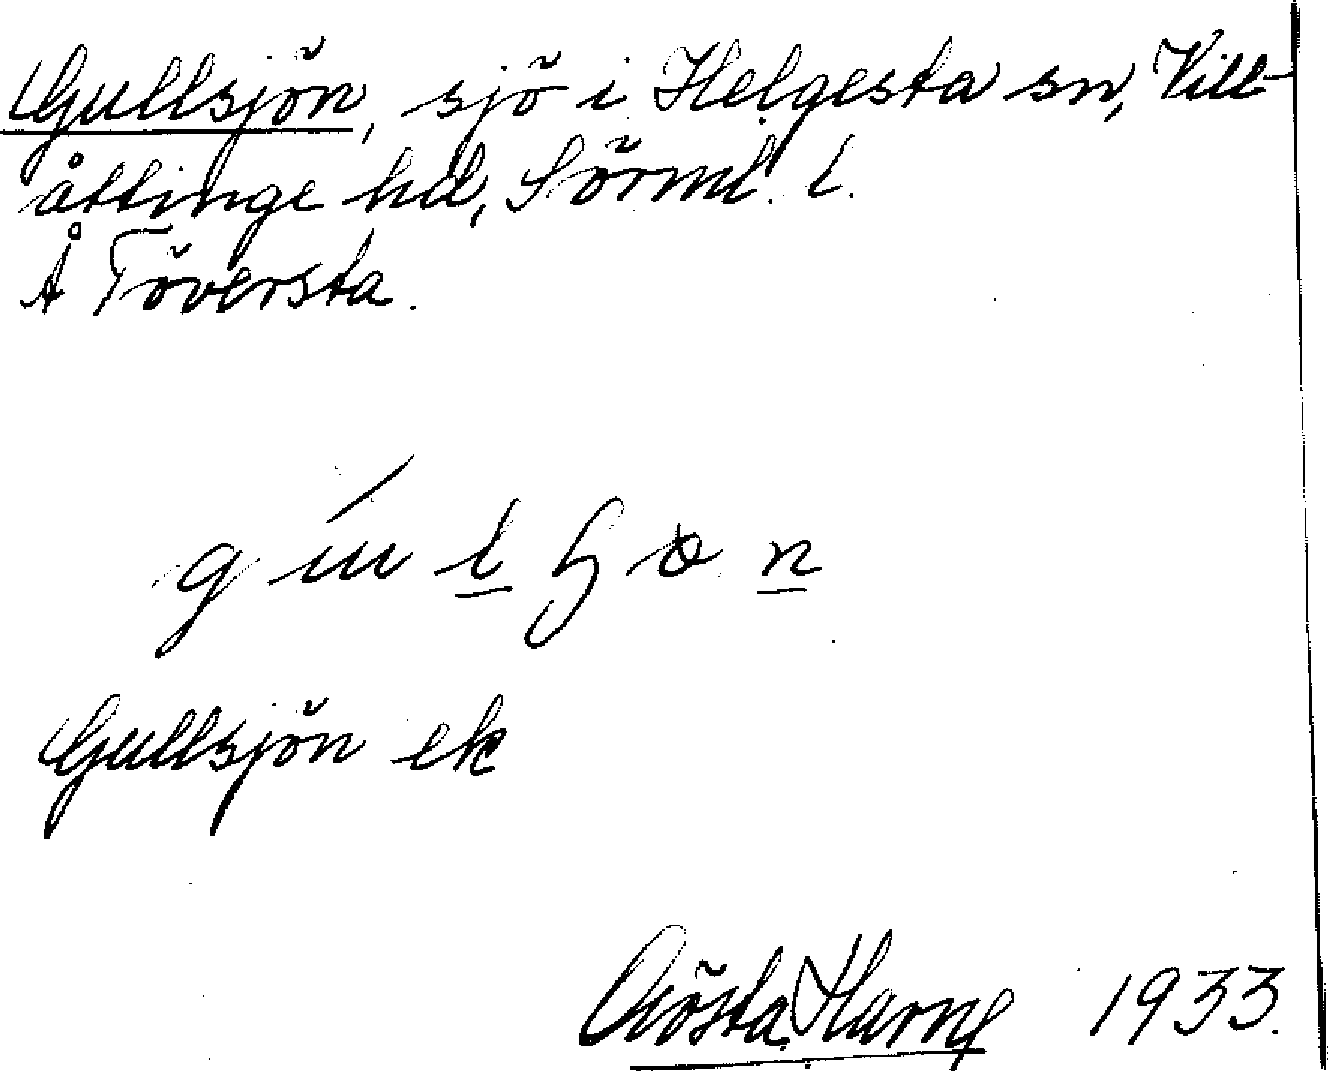 Gullsjön, sjö i Helgesta sn, Vill-
åttinge hd, Sörml. l.
Å Töversta.
Gullsjön ek
Gösta Harne 1933.